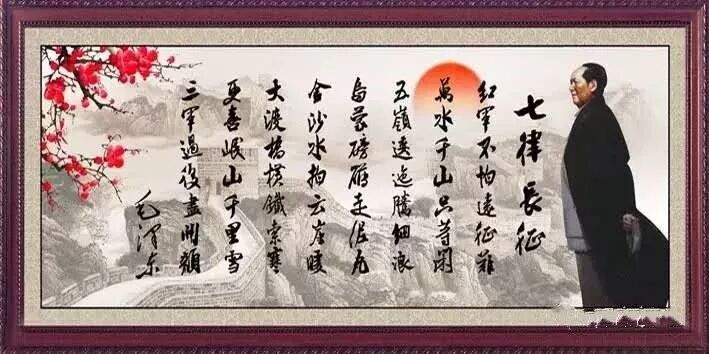 七律 長征
红军不怕遠征難
萬水千山只等閑
五嶺逶迤騰細浪
烏蒙磅礴走泥丸
金沙水拍云崖暖
大渡橋横鐵索寒
更喜岷山千里雪
三軍過後盡開顏
毛泽东